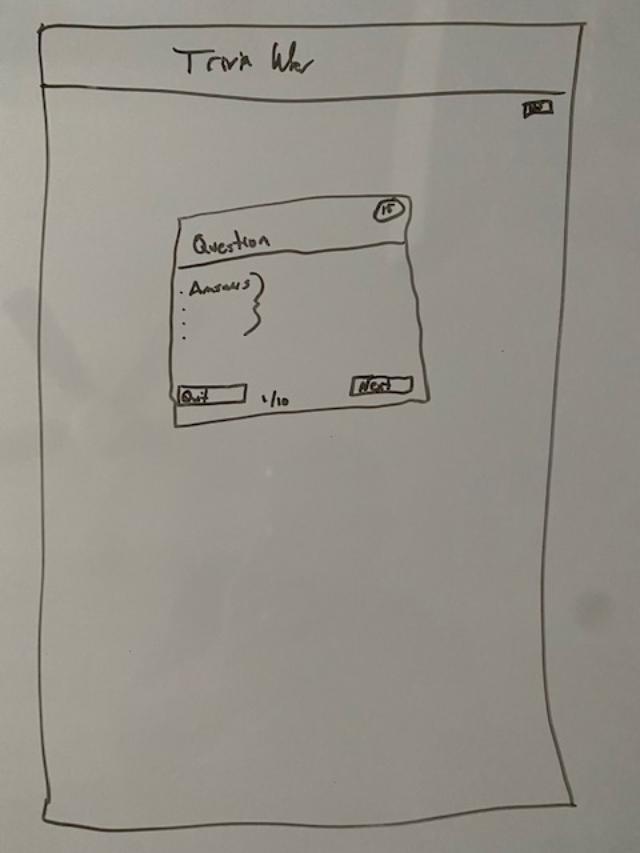 Trivia War
15
Question
Answers
Quit
1/10
Next